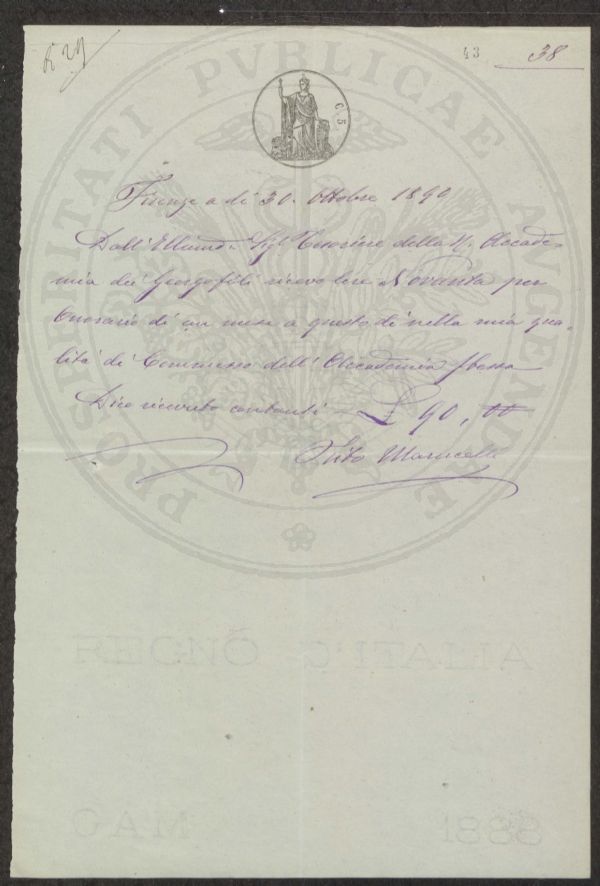 43
38
PROSPERITATI PVBLICAE AVGENDAE
C. 5.
Firenze a dì 30. Ottobre 1890
Dall' Illmo Sigr Tesoriere della R. Accade-
mia dei Georgofili ricevo lire Novanta per
Onorario di un mese a questo dì nella mia qua-
lità di Commesso dell' Accademia stessa
Dico ricevute contanti - L 90, 00
Marucelli
REGNO D'ITALIA
1888